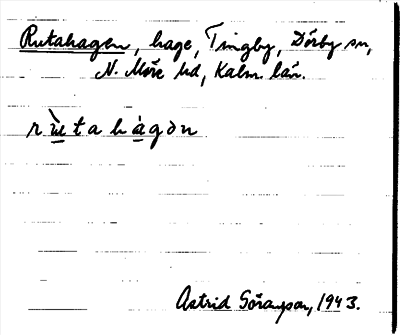 Rutahagen, hage, Tingby, Dörby sn,
N. Möre hd, Kalm. län.
rùtahàgən
Astrid Göransson, 1943.